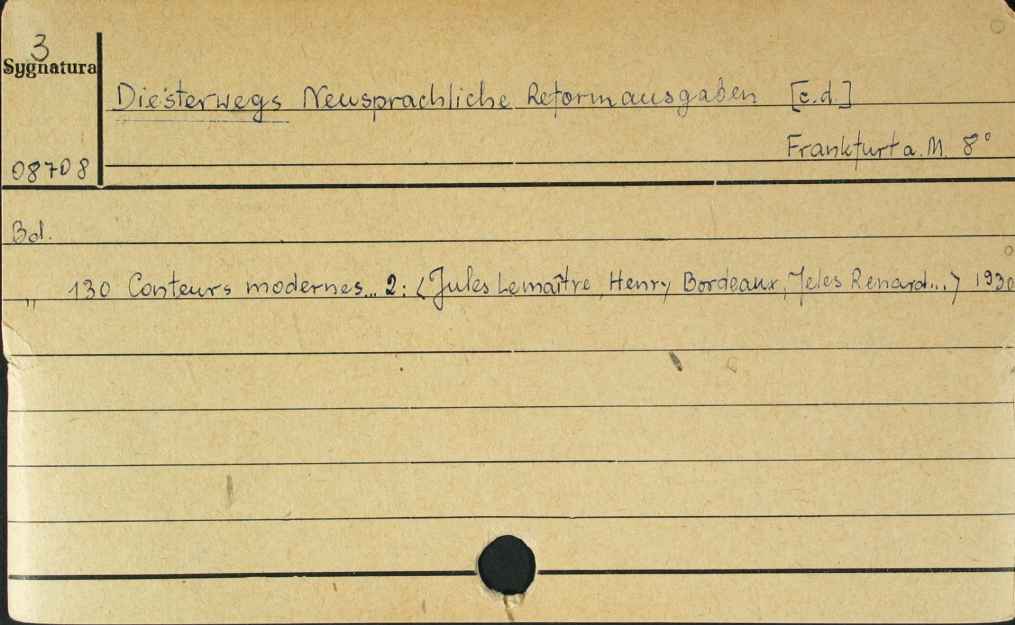 3
Sygnatura
Diesterwegs Neusprachliche Reformausgaben [c.d.]
Frankfurt a. M. 8°
08708
Bd.
„ 130 Conteurs modernes... 2: <Jules Lemaître, Henry Bordeaux, Jeles Renard...> 1930